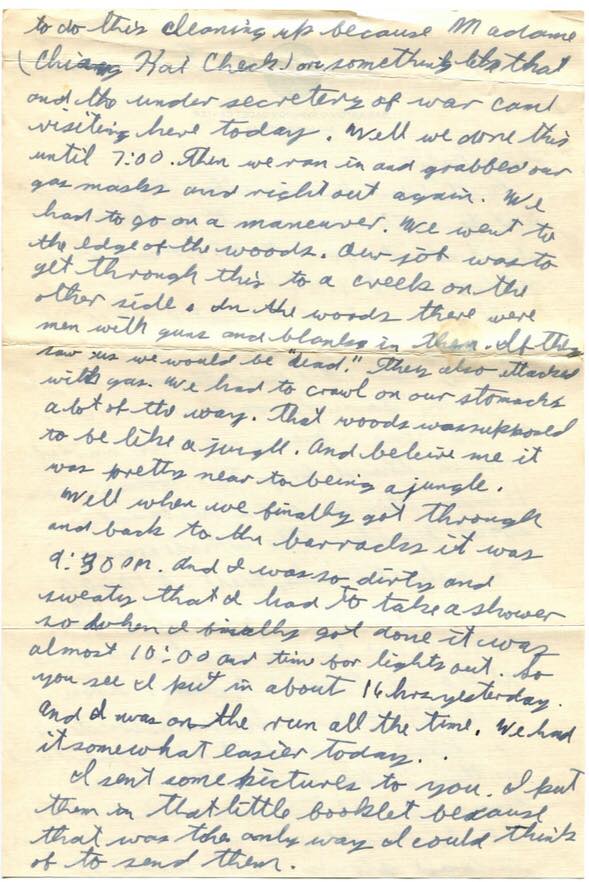 to do this cleaning up because Madame
(Chiang Kai Check) or something like that
and the under secretery of war came
visiting here today. Well we done this
until 7:00. Then we ran in and grabbed our
gas masks and right out again. We
had to go on a maneuver. We went to
the edge of the woods. Our job was to
get through this to a creek on the
other side. In the woods there were
men with guns and blanks in them. If they
saw us we would be "dead." They also attacked
with gas. We had to crawl on our stomachs
a lot of the way. That woods was supposed
to be like a jungle. And beleive me it
was pretty near to being a jungle.
Well when we finally got through
and back to the barracks it was
9:30 P.M. And I was so dirty and
sweaty that I had to take a shower
so when I finally got done it was
almost 10:00 and time for lights out. So
you see I put in about 16 hrs yesterday.
And I was on the run all the time. We had
it somewhat easier today.
I sent some pictures to you. I put
them in that little booklet because
that was the only way I could think
of to send them.